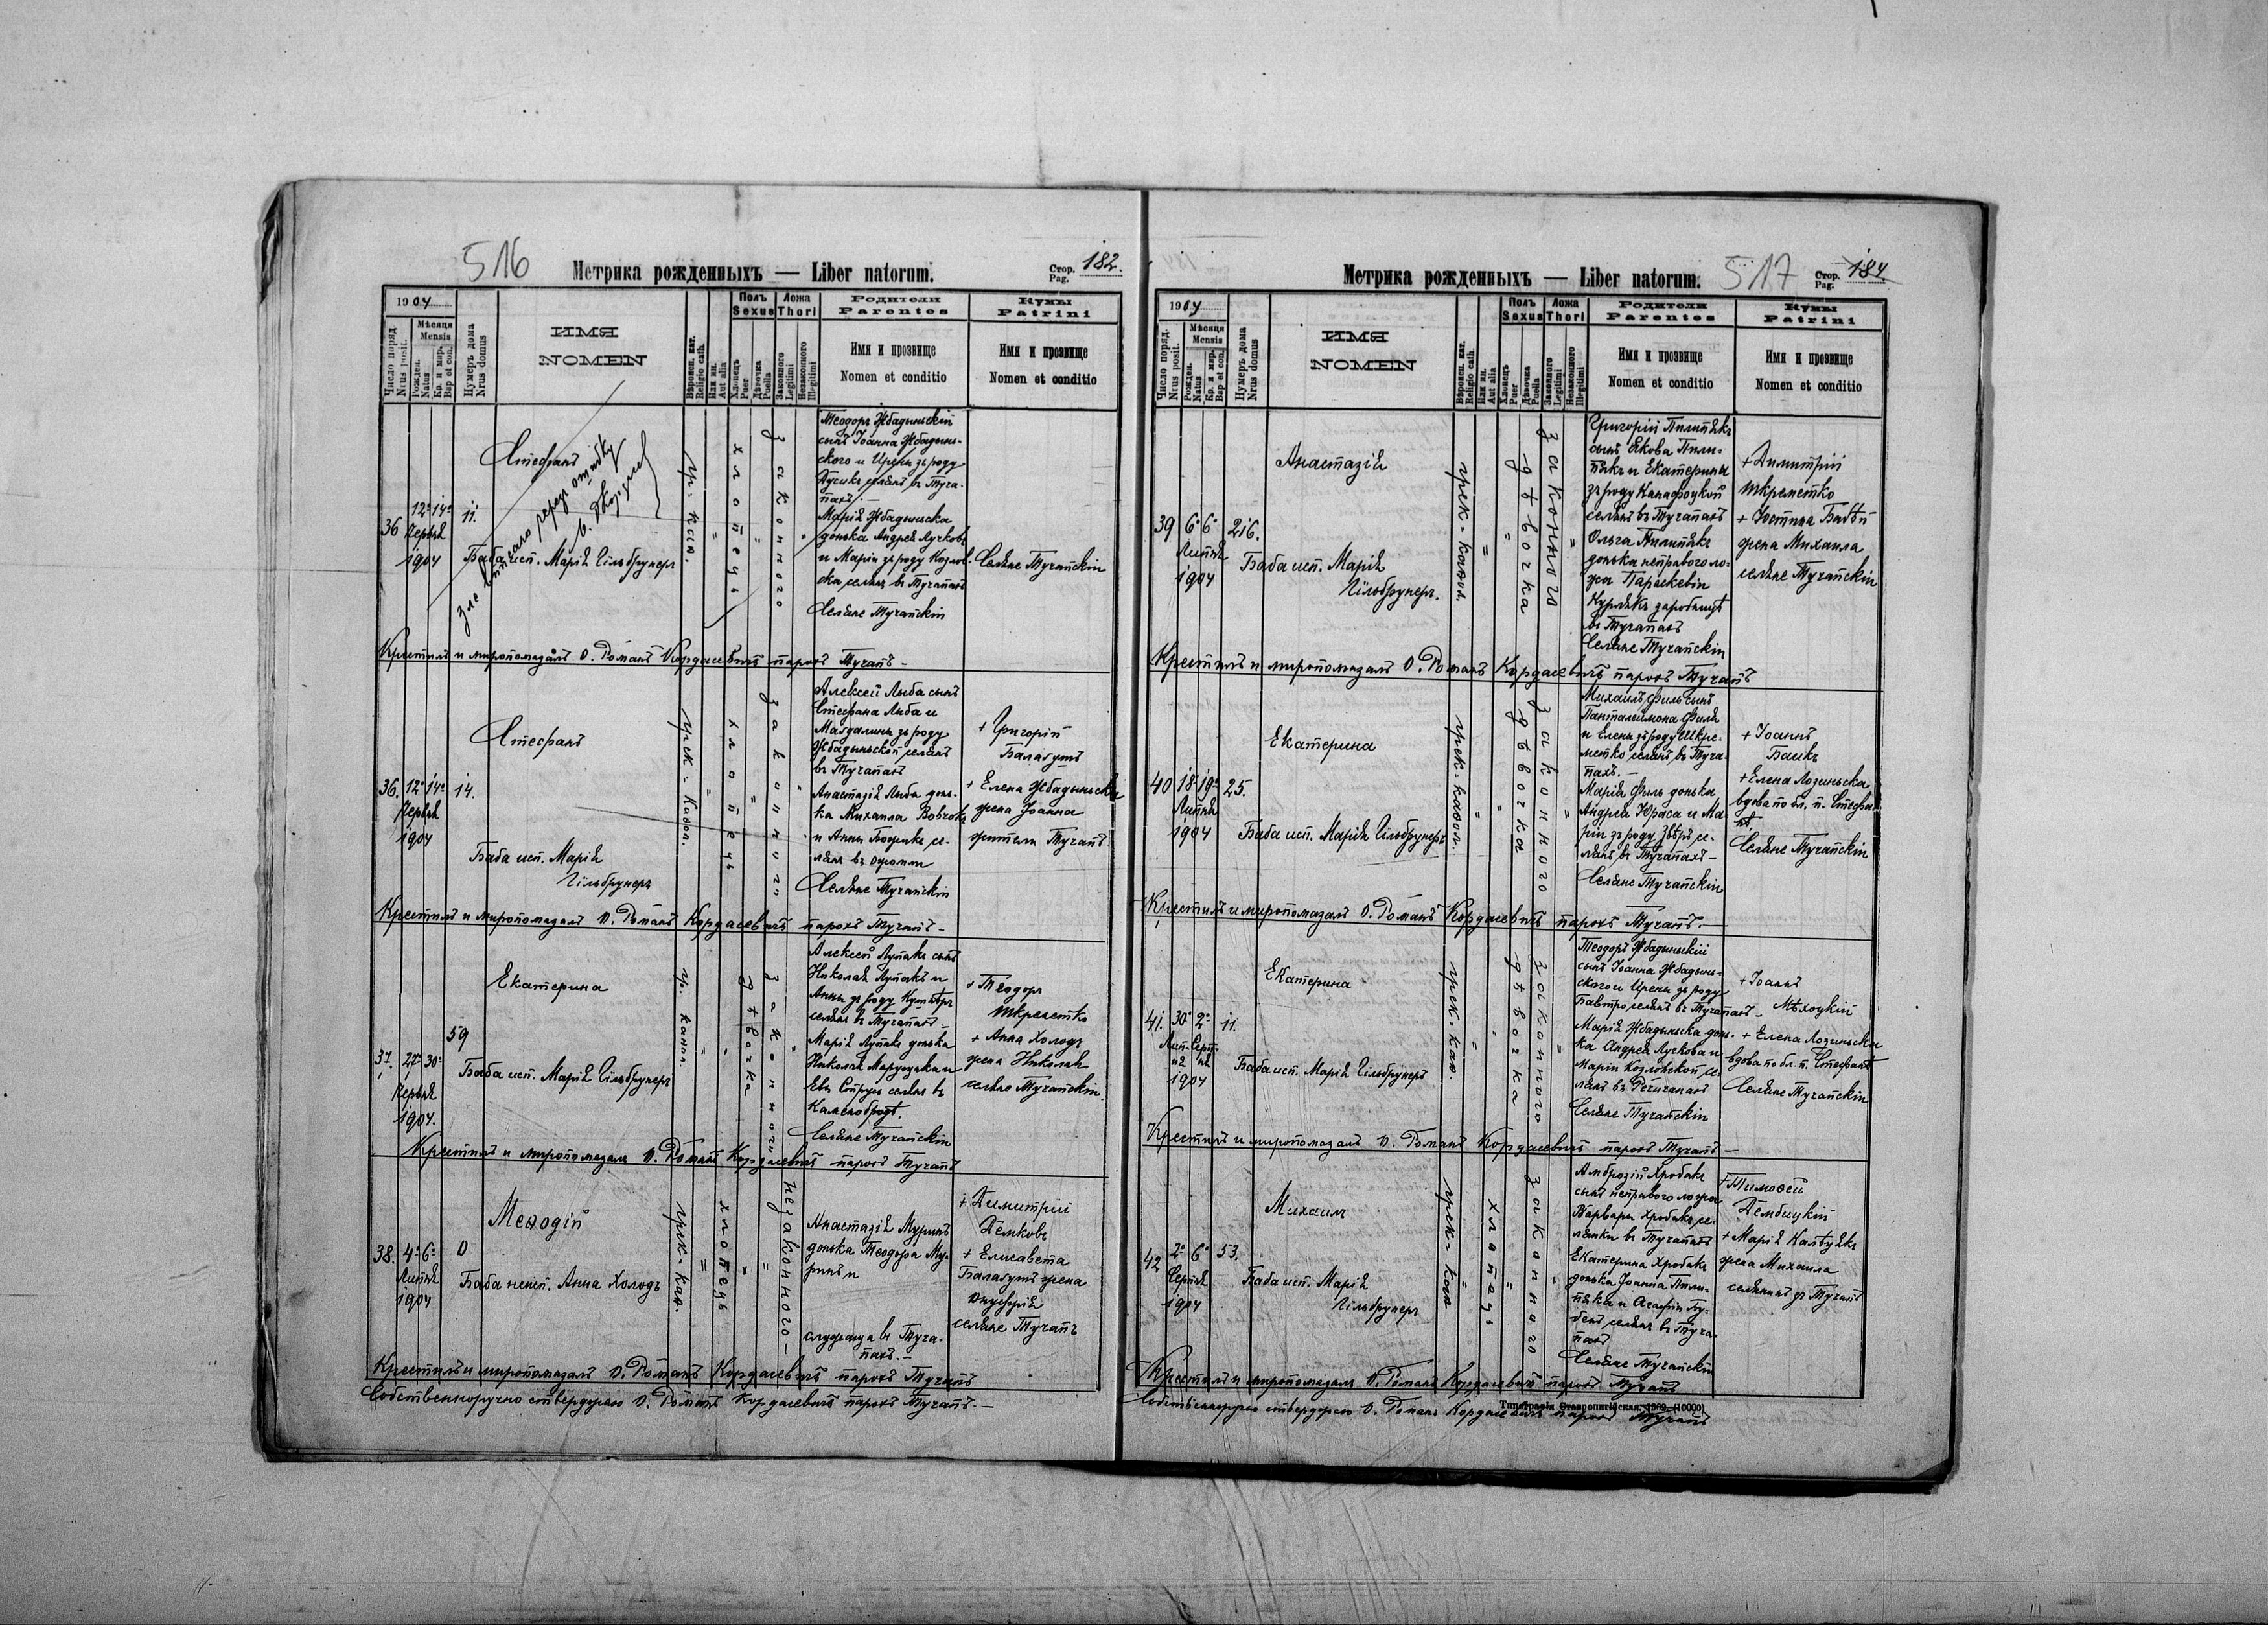 516
Метрика рожденныхъ — Liber natorum.
Стор. Pag. 182.
1904
Число поряд. Nrus posit.
Мѣсяця Mensis
Рожден. Natus
Кр. и мир. Bap et con.
Нумеръ дома Nrus domus
ИМЯ
NOMEN
Вѣроисп. кат. Religio cath.
Или ин. Aut alia
Полъ Sexus
Хлопець Puer
Дѣвочка Puella
Ложа Thori
Законного Legitimi
Незаконного Illegitimi
Родители Parentes
Имя и прозвище
Nomen et conditio
Кумы Patrini
Имя и прозвище
Nomen et conditio
36
12. 14.
Червня
1904
11.
Стефанъ
Зле
через ошибку
Баба исп. Марія Гільбрунеръ
гр. каѳ.
хлопець
законного
Теодоръ Жбадыньскій
сынъ Іоанна Жбадынь-
ского и Ирены зъ роду
селянъ въ Туча-
пахъ. —
Марія Жбадыньска
донька Андрея Лучковъ
и Маріи зъ роду Козлов-
ска селянъ въ Тучапахъ
Селяне Тучапскіи
Селяне Тучапскіи
Крестилъ и миропомазалъ О. Романъ Кордасевичъ парохъ Тучапъ —
36.
12. 14.
Червня
1904
14.
Стефанъ
Баба исп. Марія
Гільбрунеръ
грек. каѳол.
хлопець
законного
Алексей Лыба сынъ
Стефана Лыба и
Магдалины зъ роду
Жбадыньской селянъ
въ Тучапахъ
Анастазія Лыба донь-
ка Михаила Вовчокъ
и Анны се-
лянъ въ
Селяне Тучапскіи
+ Григорій
Балагутъ
+ Елена Жбадыньска
жена Іоанна
жители Тучапъ
Крестилъ и миропомазалъ О. Романъ Кордасевичъ парохъ Тучапъ —
37.
27. 30.
Червня
1904.
59
Екатерина
Баба исп. Марія Гільбрунеръ
гр. каѳол.
дѣвочка
законного
Алексей Лупакъ сынъ
Николая Лупакъ и
Анны зъ роду
селянъ въ Тучапахъ —
Марія Лупакъ донька
Николая и
Евы селянъ въ
Каменобродѣ.
Селяне Тучапскіи
+ Теодоръ
Шкреметко
+ Анна Холодъ
жена Николая
селяне Тучапскіи.
Крестилъ и миропомазалъ О. Романъ Кордасевичъ парохъ Тучапъ
38.
4. 6.
Липня
1904
0
Меѳодій
Баба неисп. Анна Холодъ
грек. каѳ.
хлопець
незаконного —
Анастазія Муринъ
донька Теодора Му-
ринъ и
служаща въ Туча-
пахъ. —
+ Димитрій
Демковъ
+ Елисавета
Балагутъ жена
Онуфрія
селяне Тучапъ
Крестилъ и миропомазалъ О. Романъ Кордасевичъ парохъ Тучапъ
Собственноручно ствердждаю О. Романъ Кордасевичъ парохъ Тучапъ. —
Метрика рожденныхъ — Liber natorum.
517
Стор. Pag. 184
1904
Число поряд. Nrus posit.
Мѣсяця Mensis
Рожден. Natus
Кр. и мир. Bap et con.
Нумеръ дома Nrus domus
ИМЯ
NOMEN
Вѣроисп. кат. Religio cath.
Или ин. Aut alia
Полъ Sexus
Хлопець Puer
Дѣвочка Puella
Ложа Thori
Законного Legitimi
Незаконного Illegitimi
Родители Parentes
Имя и прозвище
Nomen et conditio
Кумы Patrini
Имя и прозвище
Nomen et conditio
39
6. 6.
Липня
1904
216.
Анастазія
Баба исп. Марія
Гільбрунеръ.
грек. каѳол.
дѣвочка
законного
Григорій Пилипякъ
сынъ Якова Пили-
пякъ и Екатерины
зъ роду
селянъ въ Тучапахъ
Ольга Пилипякъ
донька неправого ло-
жа Параскевіи
Курлякъ
въ Тучапахъ
Селяне Тучапскіи
+ Димитрій
Шкреметко
+ Юстина
жена Михаила
селяне Тучапскіи
Крестилъ и миропомазалъ О. Романъ Кордасевичъ парохъ Тучапъ
40
18. 19.
Липня
1904
25.
Екатерина
Баба исп. Марія Гільбрунеръ
грек. каѳол.
дѣвочка
законного
Михаилъ Филь сынъ
Панталеимона Филя
и Елены зъ роду Шкре-
метко селянъ въ Туча-
пахъ. —
Марія Филь донька
Андрея Юраса и Ма-
ріи зъ роду се-
лянъ въ Тучапахъ —
Селяне Тучапскіи
+ Іоаннъ
Башкъ
+ Елена Лозиньска
вдова по бл. п. Стефа-
нѣ
Селяне Тучапскіи
Крестилъ и миропомазалъ О. Романъ Кордасевичъ парохъ Тучапъ. —
41.
30. 2.
1904
11.
Екатерина
Баба исп. Марія Гільбрунеръ
грек. каѳ.
дѣвочка
законного
Теодоръ Жбадыньскій
сынъ Іоанна Жбадынь-
ского и Ирены зъ роду
селянъ въ Тучапахъ —
Марія Жбадыньска донь-
ка Андрея Лучкова и
Маріи Козловской се-
лянъ въ Речичанахъ
Селяне Тучапскіи
+ Іоаннъ
Мѣхоцкій
+ Елена Лозиньска
вдова по бл. п. Стефанѣ
Селяне Тучапскіи
Крестилъ и миропомазалъ О. Романъ Кордасевичъ парохъ Тучапъ —
42
2. 6.
Серпня
1904
53.
Михаилъ
Баба исп. Марія
Гільбрунеръ
грек. каѳ.
хлопець
законного
Амброзій Хробакъ
сынъ неправого ложа
Варвары Хробакъ се-
лянки въ Тучапахъ
Екатерина Хробакъ
донька Іоанна Пили-
пяка и Агафіи
селянъ въ Туча-
пахъ
Селяне Тучапскіи
+ Тимоѳей
Дембицкій
+ Марія
жена Михаила
селянинъ зъ Тучапъ
Крестилъ и миропомазалъ О. Романъ Кордасевичъ парохъ Тучапъ
Собственноручно ствердждаю О. Романъ Кордасевичъ парохъ Тучапъ
Типографія Ставропигійская, 1902. (10000)